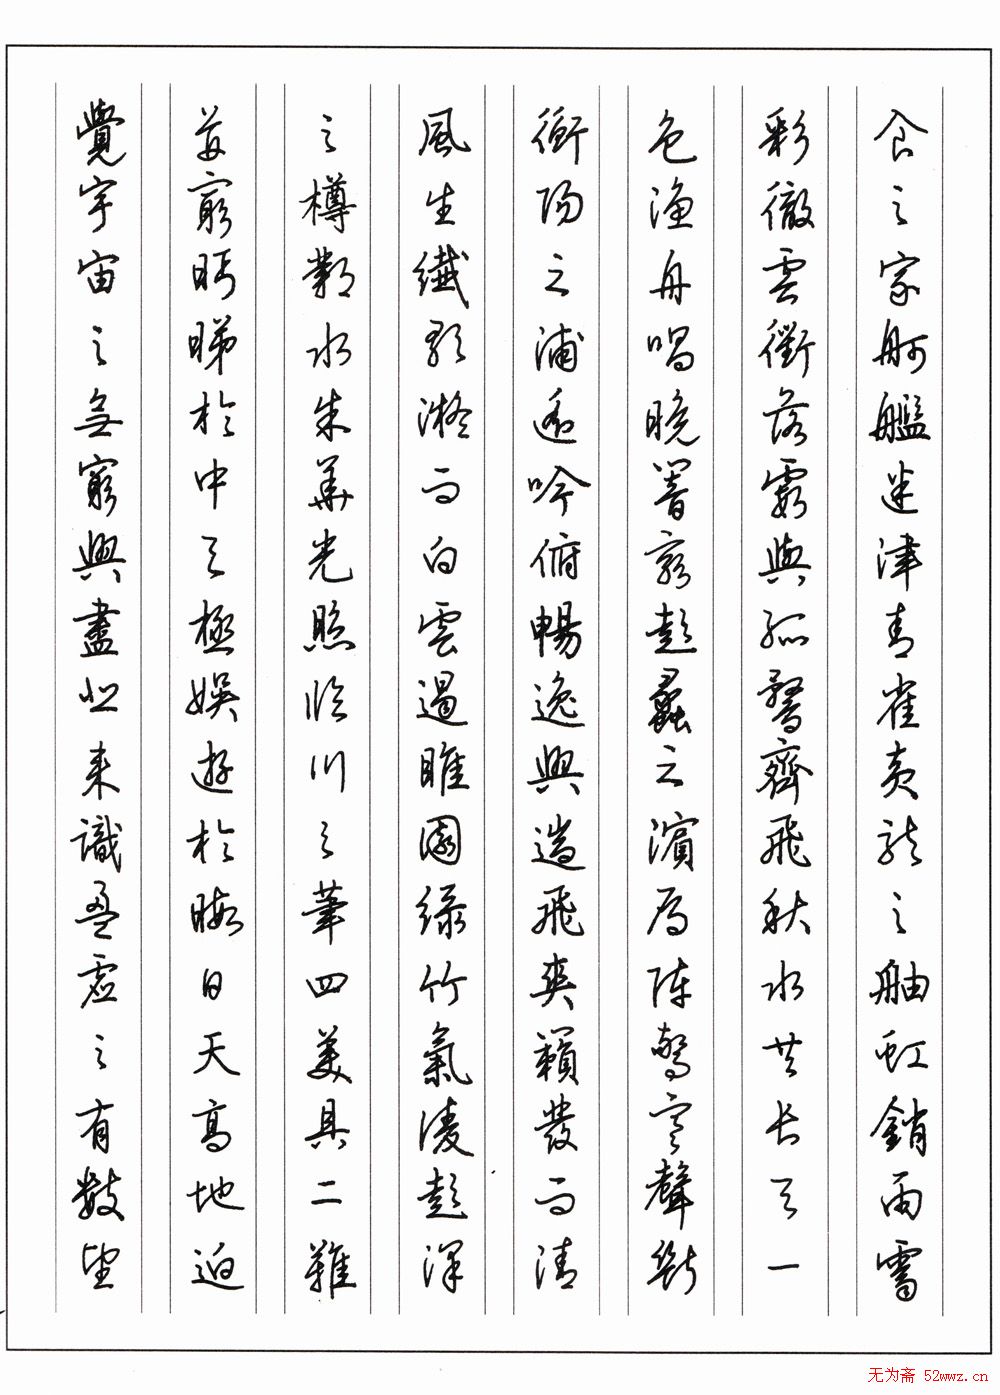 食之家舸艦迷津青雀黃龍之舳虹銷雨霽
彩徹雲衢落霞與孤鶩齊飛秋水共長天一
色漁舟唱晚響窮彭蠡之濱雁陣驚寒聲斷
衡陽之浦遙吟俯暢逸興遄飛爽籟發而清
風生纖歌凝而白雲遏睢園綠竹氣淩彭澤
之樽鄴水朱華光照臨川之筆四美具二難
並窮眄睇於中天極娛遊於暇日天高地迥
覺宇宙之無窮興盡悲來識盈虛之有數望
无为斋 52wwz.cn